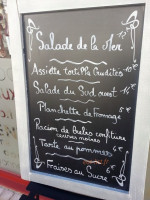 Salade de la Mer
Assiette Crudités 10€
Salade du Sud ouest 12€
Planchette de fromage
5€
confiture
cerises noires
Tarte aux pommes
6€
Fraises au Sucre 6€